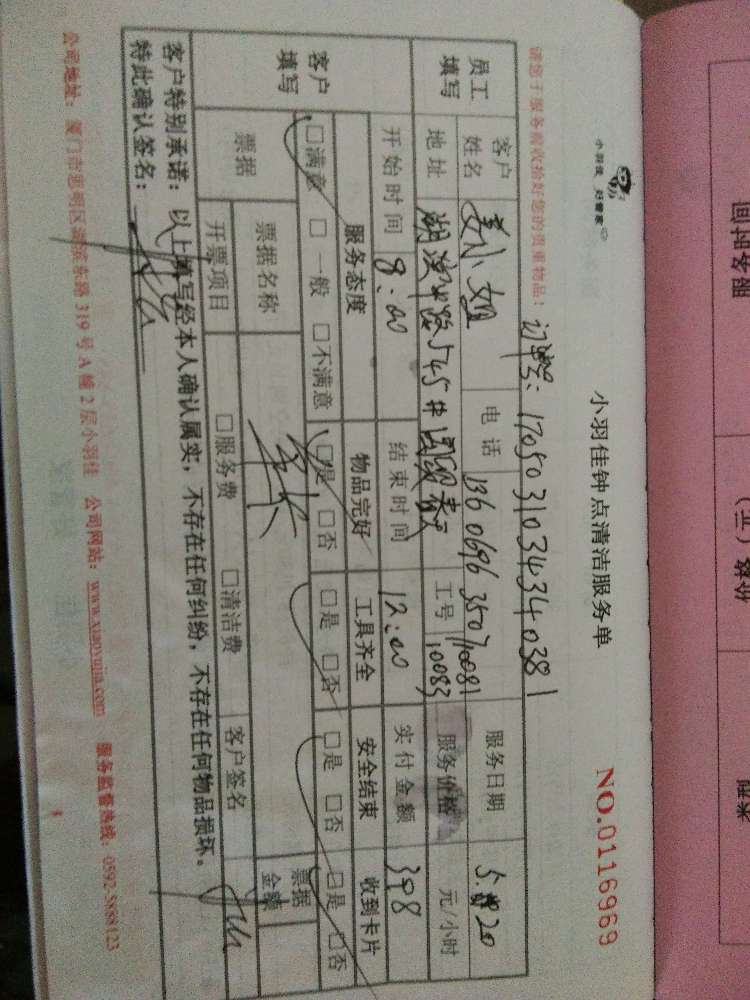 小羽佳 好管家
小羽佳钟点清洁服务单
NO.0116969
请您于服务前收拾好您的贵重物品:
订单号: 1705031034340381
员工填写
客户姓名 姜小姐 电话 13606963507 工号 10081 10083 服务日期 5.20
地址 湖滨中路545# 服务价格 元/小时
开始时间 8:00 结束时间 12:00 实付金额 398
客户填写
服务态度 物品完好 工具齐全 安全结束 收到卡片
□满意 □一般 □不满意 □是 □否 □是 □否 □是 □否 □是 □否
票据 票据名称 票据金额
开票项目 □服务费 □清洁费 客户签名
客户特别承诺:以上填写经本人确认属实,不存在任何纠纷,不存在任何物品损坏。
特此确认签名:
公司地址:厦门市思明区湖滨东路319号A幢2层小羽佳 公司网站:www.xiaoyujia.com 服务监督热线:0592-5888123
服务时间
份餐(三)